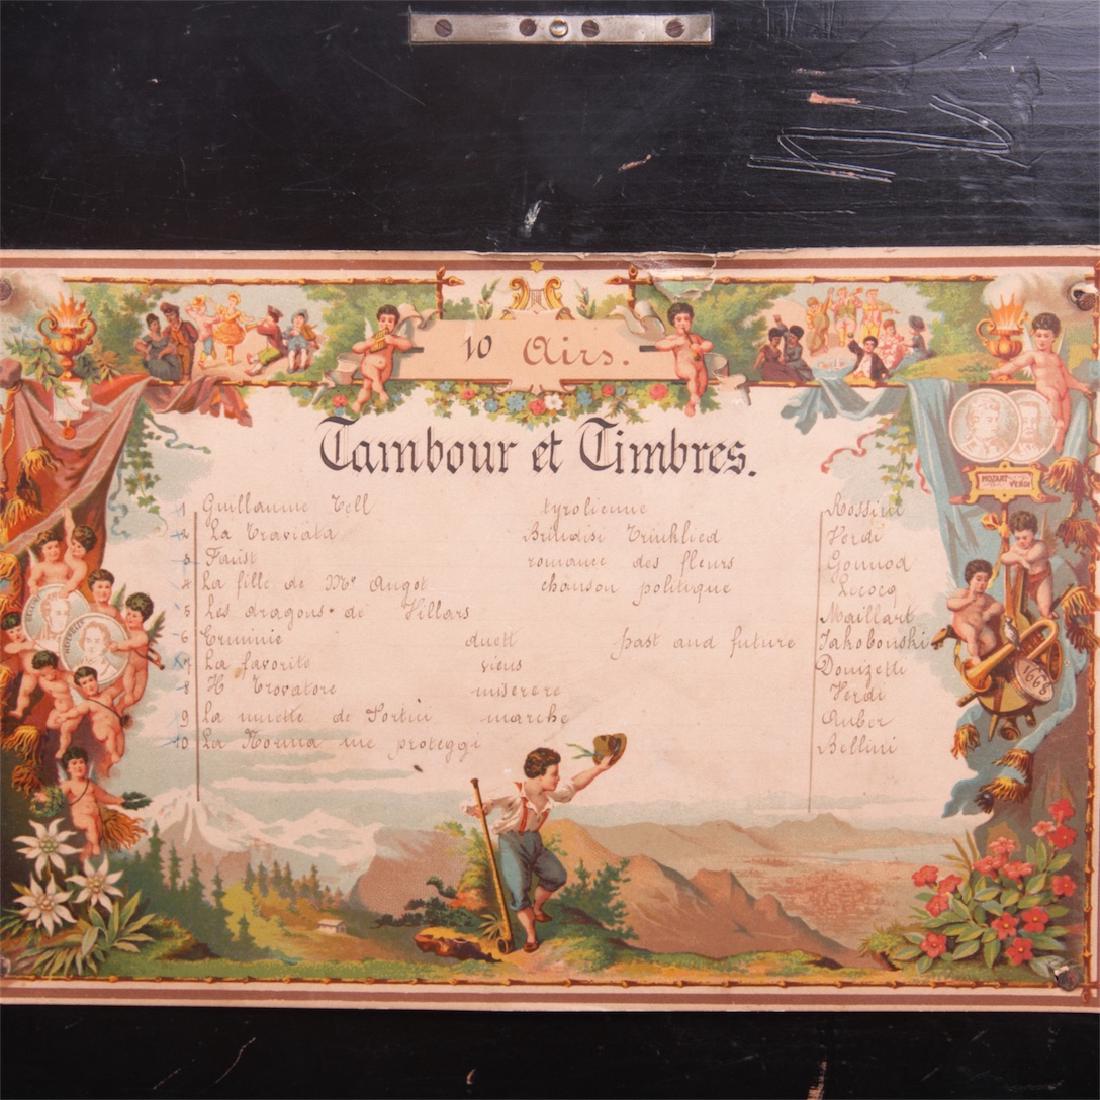 10 Airs.
Tambour et Timbres.
MOZART VERDI
1 Guillaume Tell tyrolienne Rossini
2 La Traviata Brindisi Trinklied Verdi
3 Faust romance des fleurs Gounod
4 La fille de Me Angot chanson politique Lecocq
5 Les dragons de Villars Maillart
6 Erminie duett past and future Jakobowski
7 La favorite viens Donizetti
8 Il Trovatore miserere Verdi
9 La muette de Portici marche Auber
10 La Norma me proteggi Bellini
1668